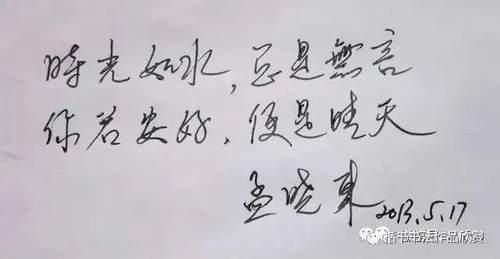 時光如水,总是無言
你若安好,便是晴天
孟晓東 2013.5.17
楷书书法作品欣赏